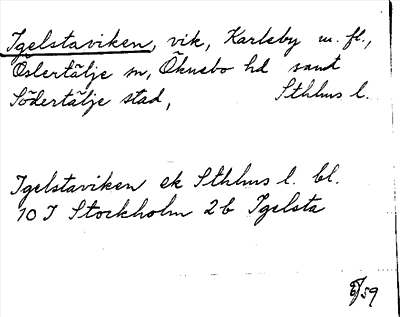 Igelstaviken, vik, Karleby m. fl.,
Östertälje sn, Öknebo hd samt
Södertälje stad, Sthlms l.
Igelstaviken ek Sthlms l. bl.
10 I Stockholm 2b Igelsta
/59